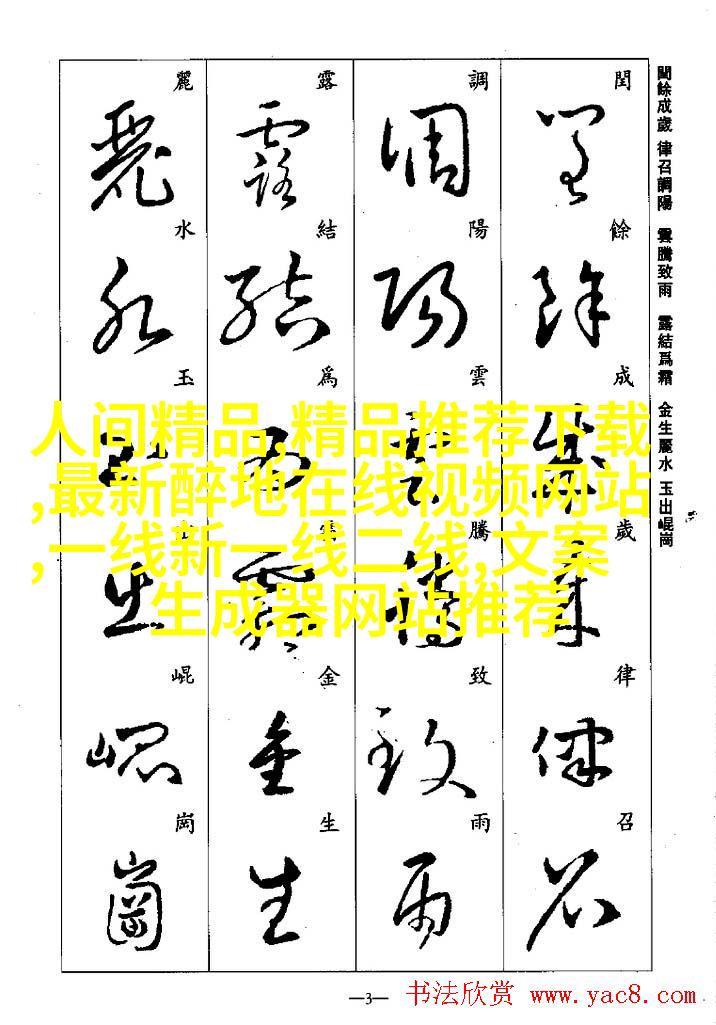 閏餘成歲 律召調陽 雲騰致雨 露結爲霜 金生麗水 玉出崐崗
閏
餘
成
歲
律
召
調
陽
雲
騰
致
雨
露
結
爲
霜
金
生
麗
水
玉
崐
崗
人间精品,精品推荐下载
,最新醉地在线视频网站
,一线新一线二线,文案
生成器网站推荐
—3—
书法欣赏 www.yac8.com